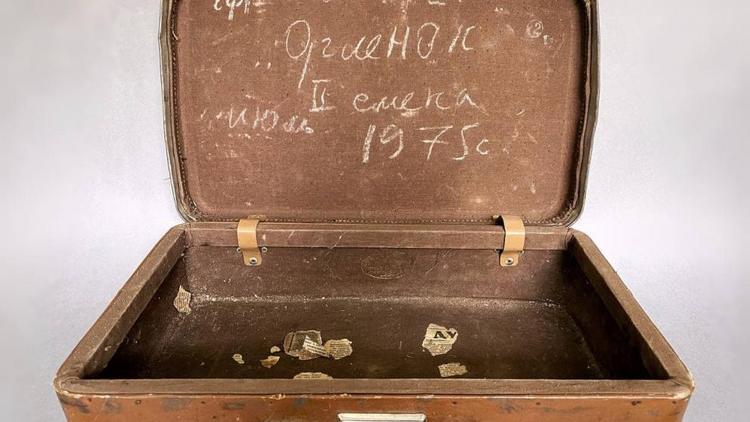 Орленок
II смена
Июль
1975г